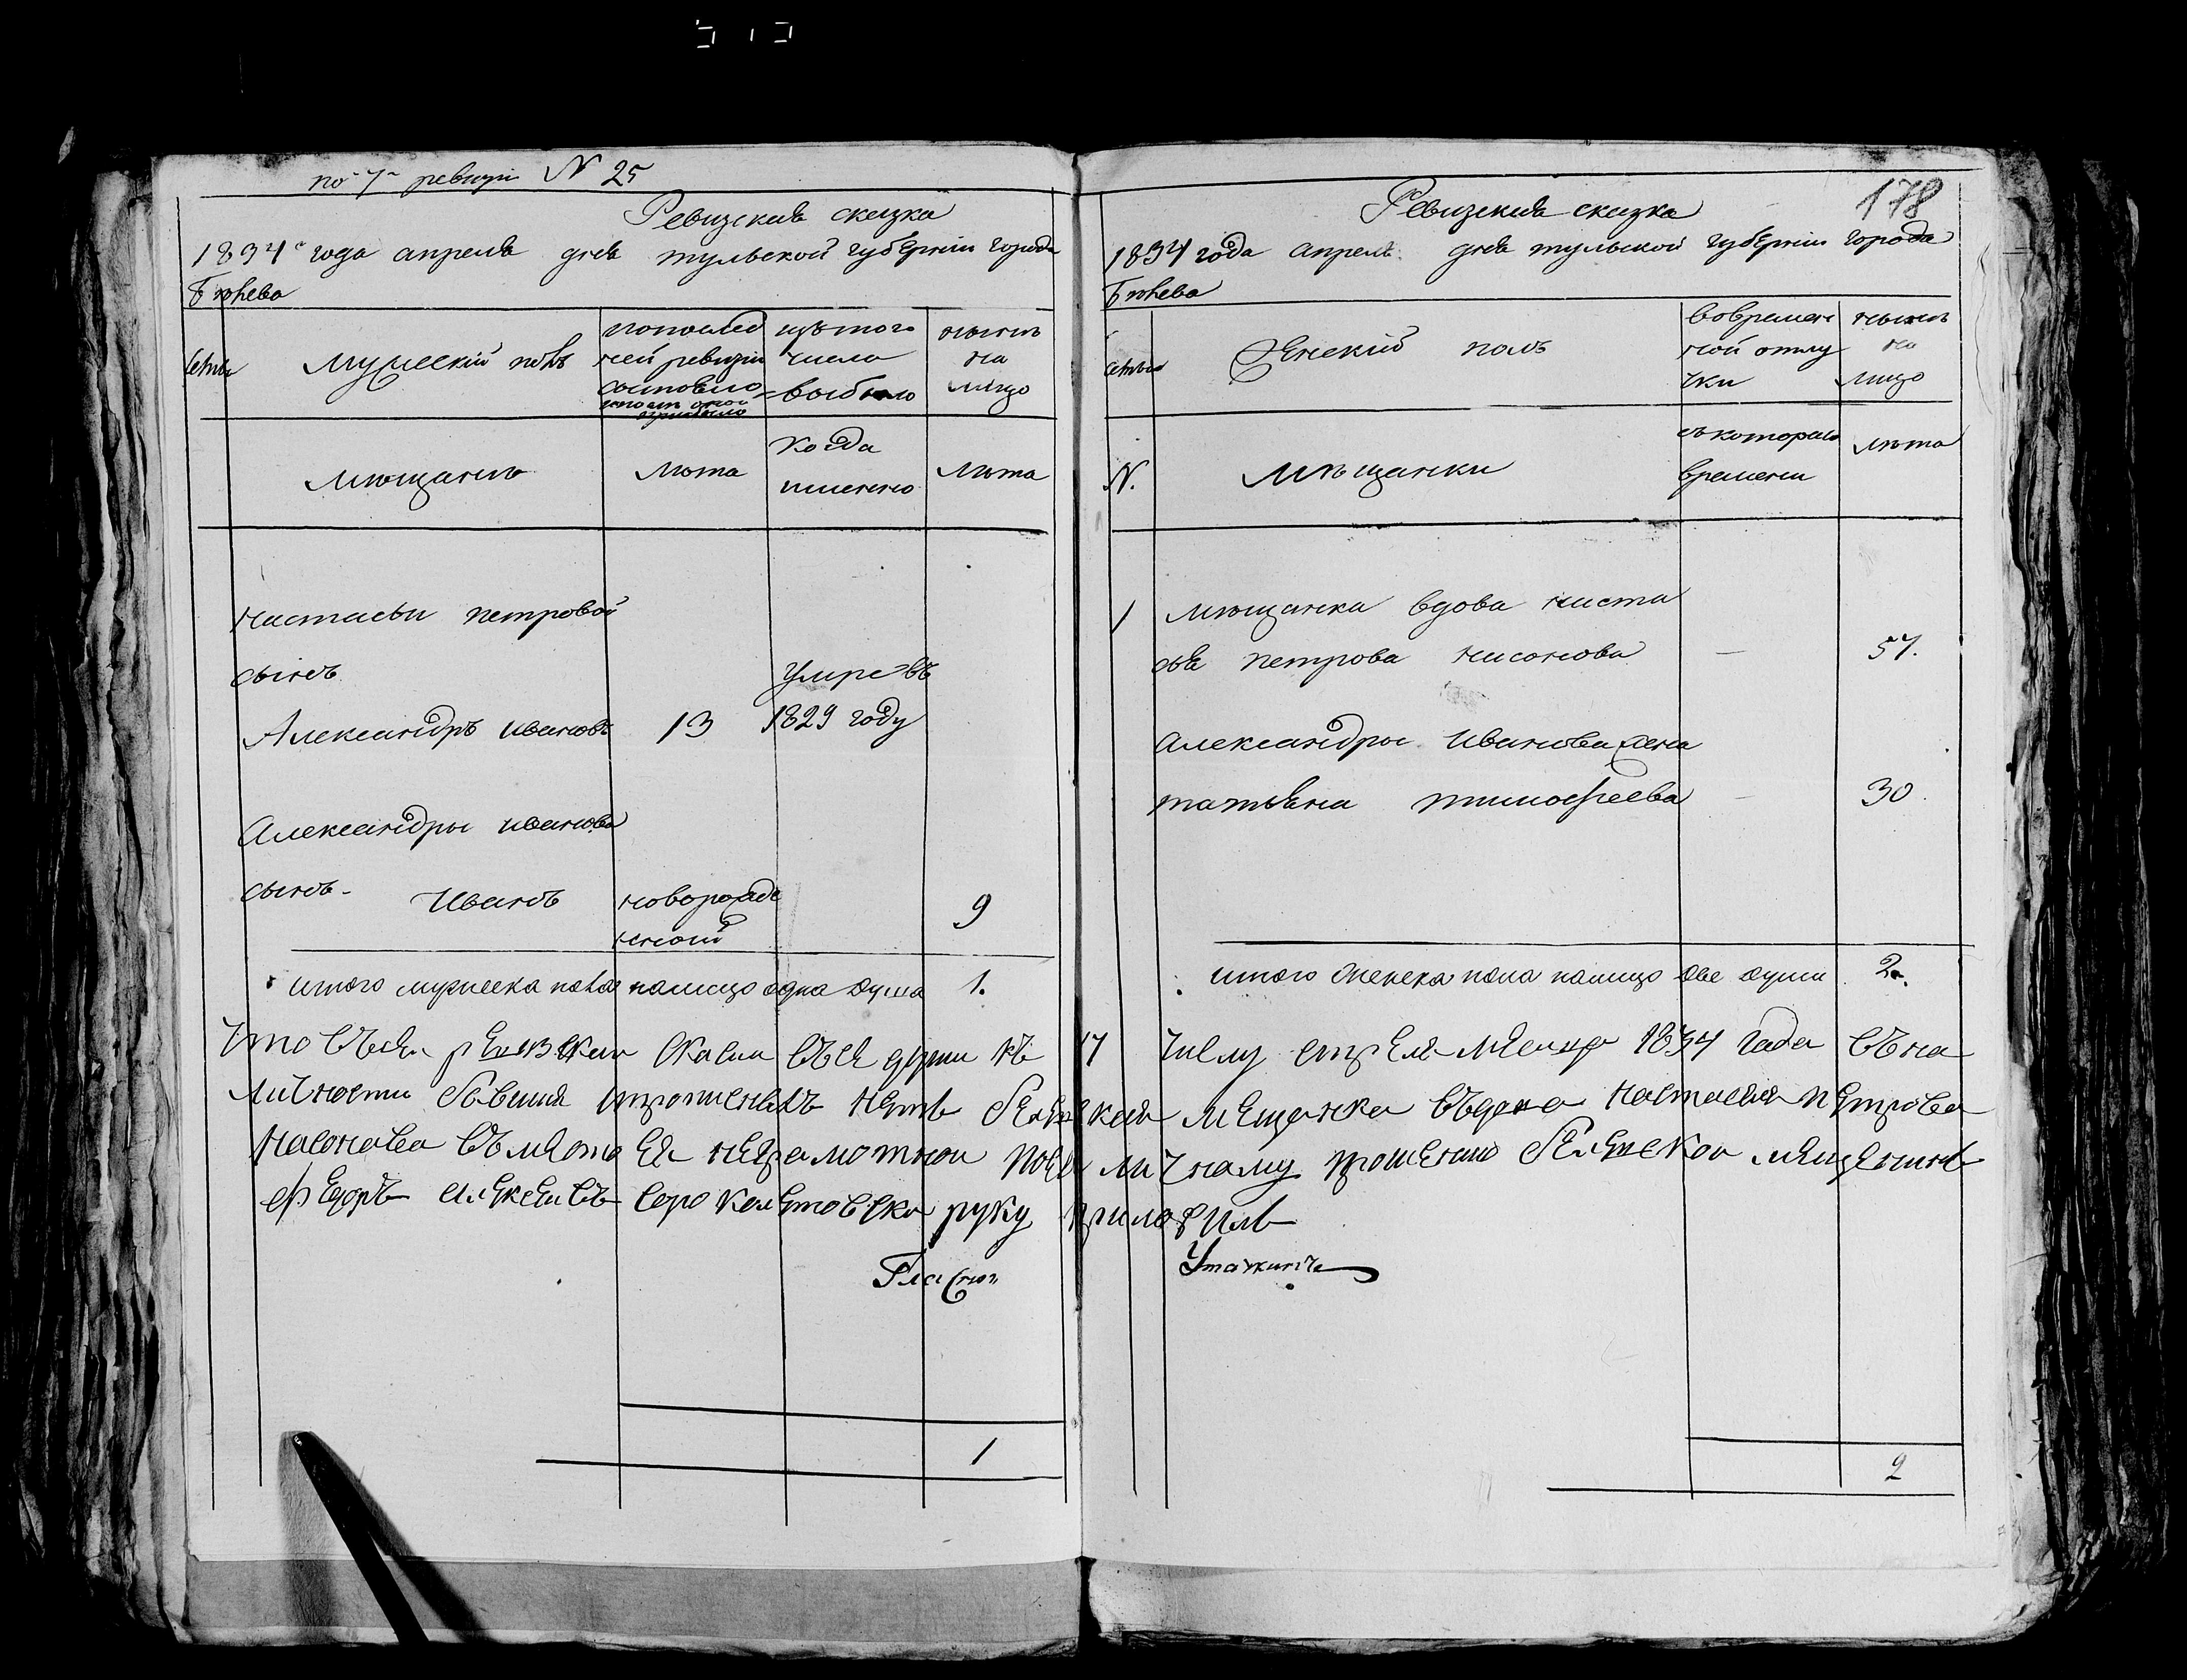 по 7й ревизіи N 25
Ревизская сказка
1834го года апреля дня тульской губерніи города
Белева
семьи
Мужескій полъ
попослед
ней ревизіи
состояло
изъ того
числа
выбыло
нынѣ
на
лицо
мѣщанѣ
Лѣта
Когда
именно
Лѣта
Настасьи петровой
сынъ
Умре въ
Александръ ивановъ 13 1829 году
Александры иванова
сынъ - Иванъ новорожде 9
нной
итого мужеска пола налицо одна душа 1.
178
Ревизская сказка
1834 года апреля дня тульской губерніи города
Белева
семьи
Женский полъ
вовремен
ной отлу
чки
нынѣ
на
лицо
N.
Мѣщанки
съкотораго
времени
лѣта
1 мѣщанка вдова наста
сья петрова насонова — 57.
Александры Иванова жена
татьяна тимофеева — 30.
итого женска пола налицо две души 2.
Что въсей ревизской скаски въся души къ 17 числу апреля месяца 1834 года въна
личности бывшия ипрописныхъ нетъ белевская мещанка въдова настасья петрова
насонова въместо ея неграмотной поея личному прошению белевской мещенинъ
федоръ алексеивъ руку приложилъ
Гласной
1
2